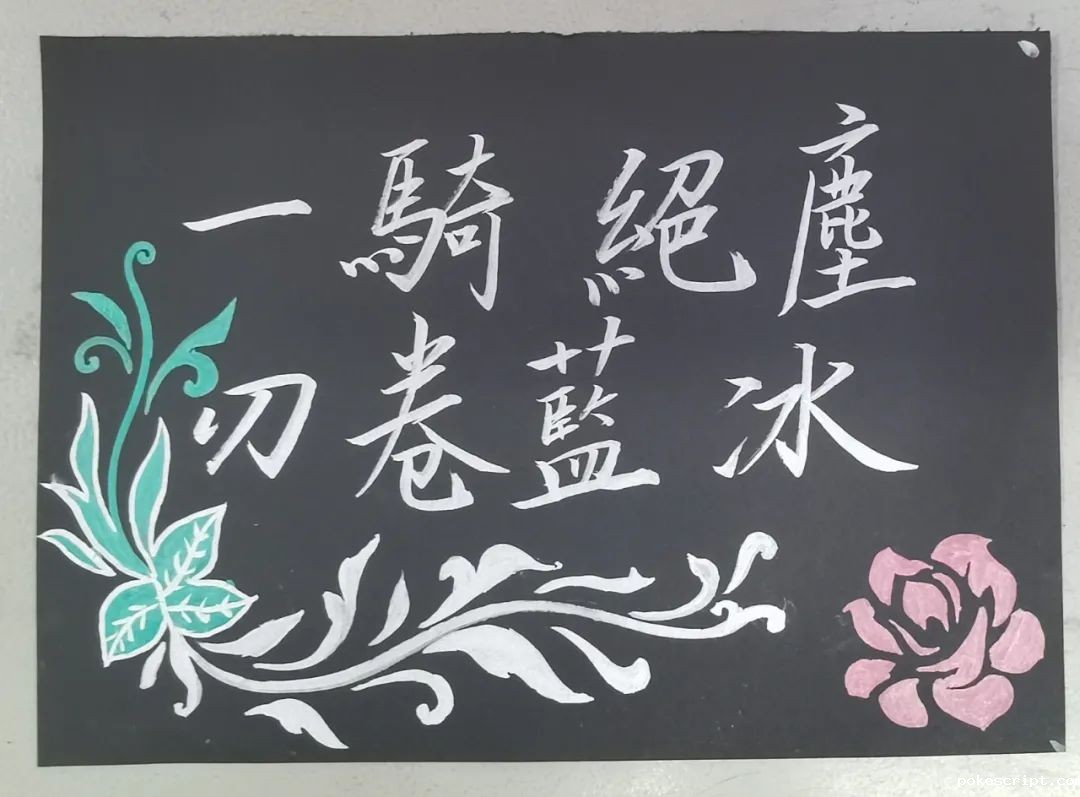 一騎絕塵
刀卷藍冰
pokescript.com